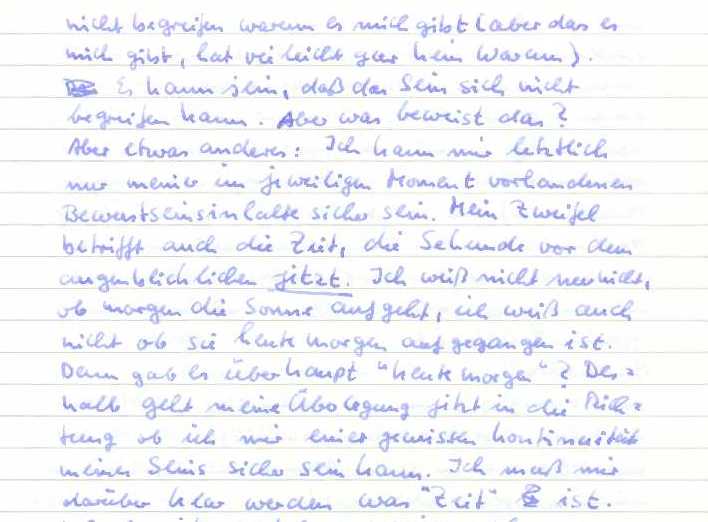 nicht begreifen warum es mich gibt (aber das es
mich gibt, hat vielleicht gar kein Warum).
Es kann sein, daß das Sein sich nicht
begreifen kann. Aber was beweist das?
Aber etwas anderes: Ich kann mir letztlich
nur meiner im jeweiligen Moment vorhandenen
Bewustseinsinhalte sicher sein. Mein Zweifel
betrifft auch die Zeit, die Sekunde vor dem
augenblicklichen jetzt. Ich weiß nicht nur nicht,
ob morgen die Sonne aufgeht, ich weiß auch
nicht ob sie heute morgen aufgegangen ist.
Denn gab es überhaupt "heute morgen"? Des=
halb geht meine Überlegung jetzt in die Rich=
tung ob ich mir einer gewissen Kontinuität
meines Seins sicher sein kann. Ich muß mir
darüber klar werden was "Zeit" ist.